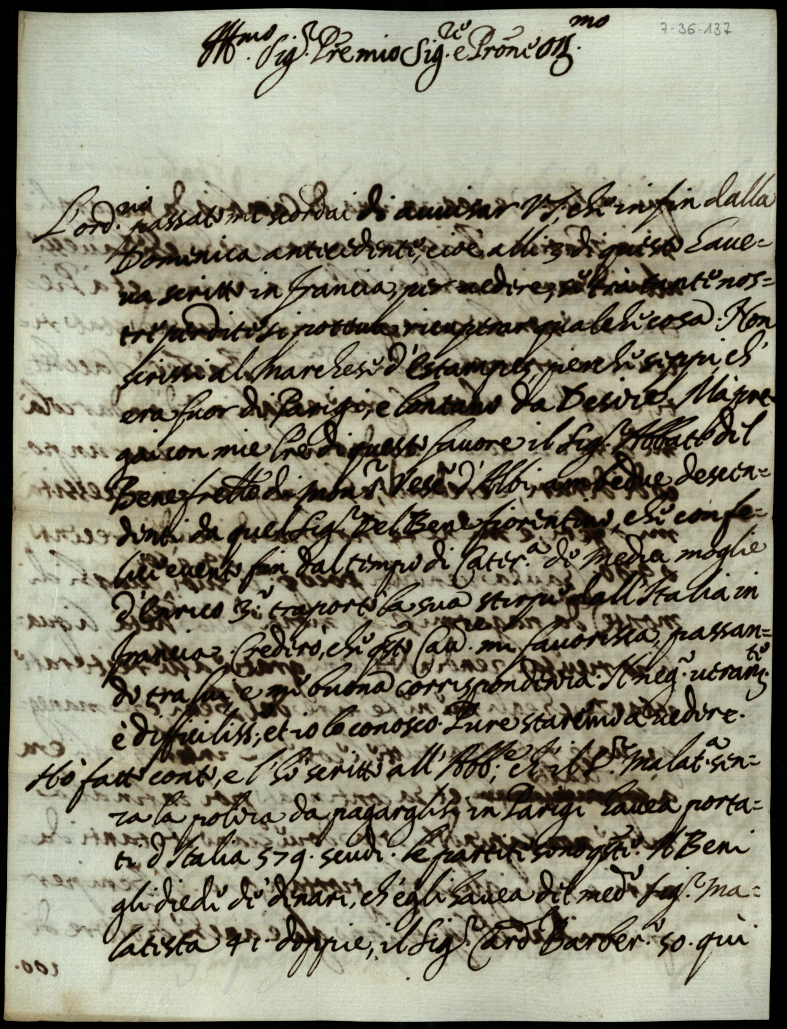 7-36-137
Ill.mo Sig.r P.re mio Sig.re e P.rone Oss.mo
L'ord.rio passato mi scordai di auuisar VS. che in fin dalla
Domenica antecedente, cioè alli 3 di questo haue-
ua scritto in francia, per uedere, se tra tante nos-
tre perdite si poteua ricuperar qualche cosa. Non
scrissi al Marchese d'Estampes, perche seppi ch'
era fuor di Parigi, e lontano da Desire. Mà pre-
gai con mie l.re di questo fauore il Sig.r Abbate del
Bene fr'ello di mon.r Vesc.o d'Albi, ambedue descen-
denti da quel Sig.r Del Bene fiorentino, che
fin dal tempo di Cater.a de Medici moglie
d'Enrico trasportò la sua stirpe dall'Italia in
francia. Crederò, che q.to Cau. mi fauorisca, passan-
do tra lui, e mè buona corrispondenza. Il neg.o
è difficiliss.o, et io lo conosco. Pure staremo à uedere.
Hò fatto conto, e l'hò scritto all'Abb.e, ch'il S.r Malat.a sen-
za la poliza da pagarglisi in Parigi hauea porta-
ti d'Italia 579. scudi. le partite sono q.te. Il Beni
gli diede de' dinari, ch'egli hauea del med.o sig.r Ma-
latista 41. doppie, il Sig.r Card. Barber.o 50. quì
100.